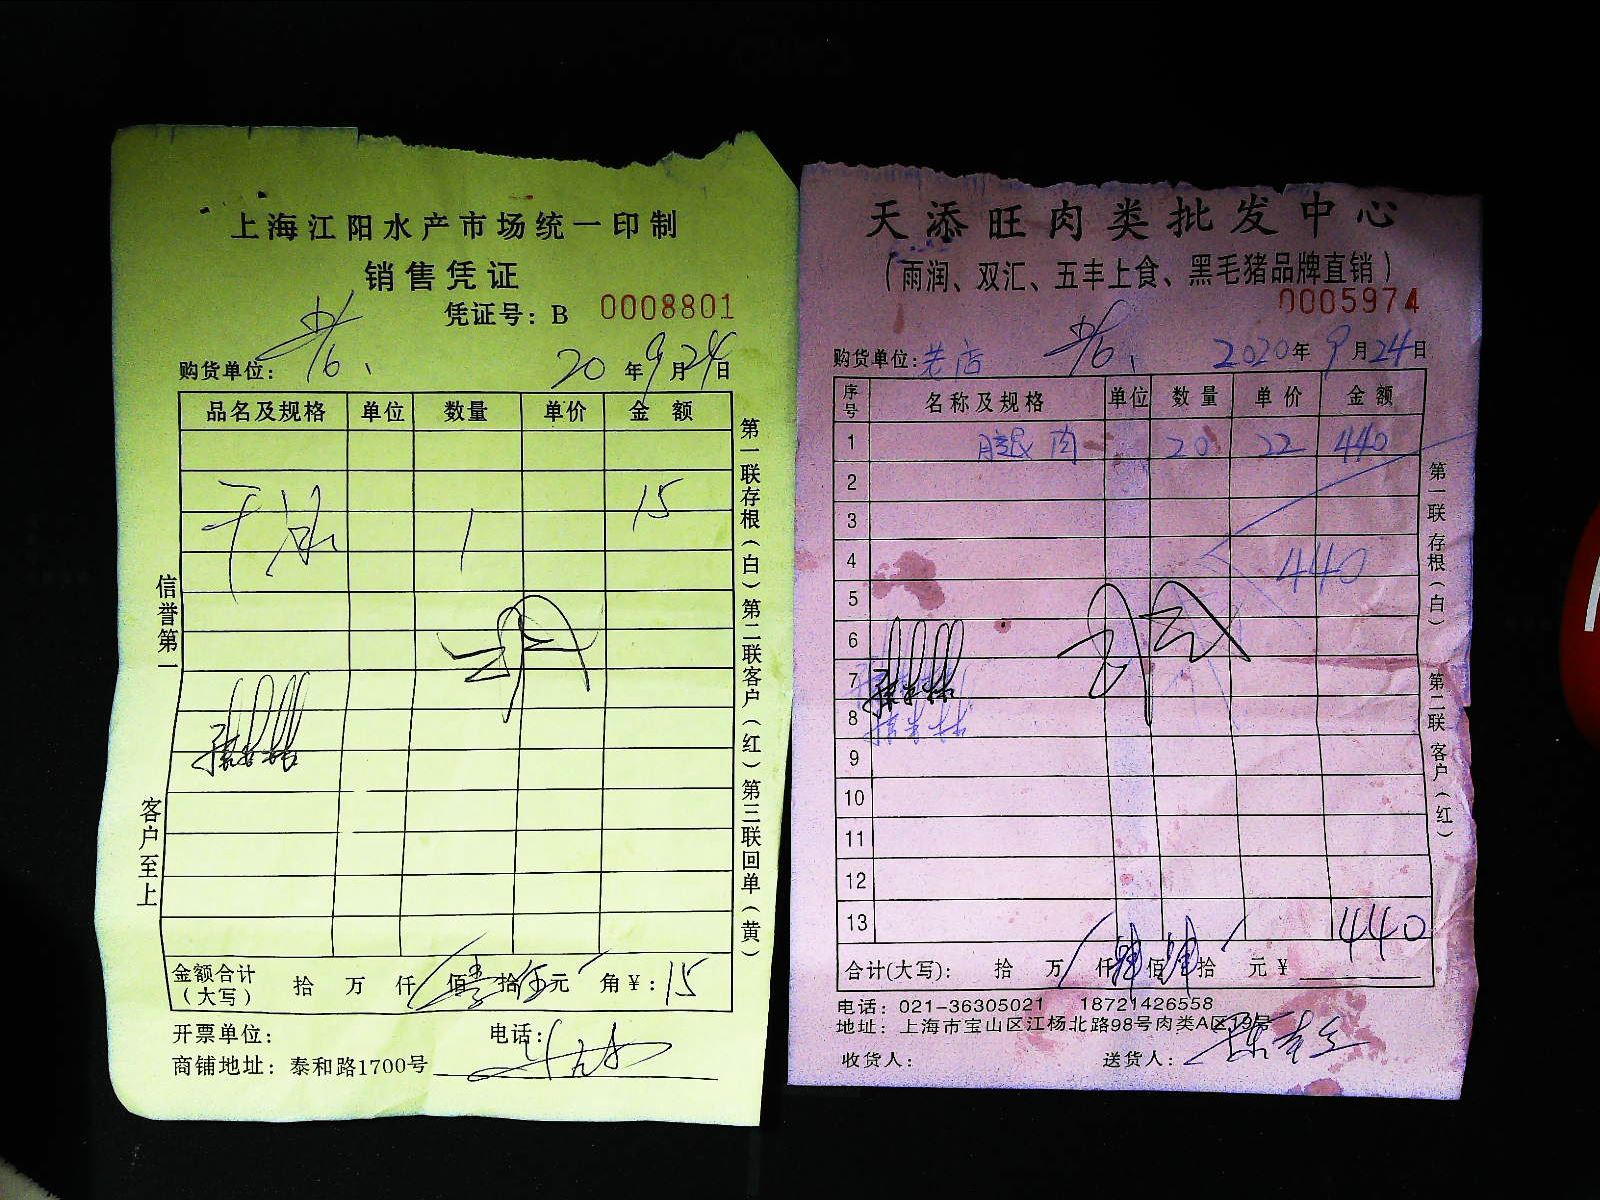 上海江阳水产市场统一印制
销售凭证
凭证号：B 0008801
购货单位： 20年9月24日
品名及规格 单位 数量 单价 金额
干冰 1 15
信誉第一
客户至上
第一联存根（白）第二联客户（红）第三联回单（黄）
金额合计（大写） 拾 万 仟 佰壹拾伍元 角￥：15
开票单位： 电话：
商铺地址：泰和路1700号
天添旺肉类批发中心
（雨润、双汇、五丰上食、黑毛猪品牌直销）
0005974
购货单位：老店 2020年9月24日
序号 名称及规格 单位 数量 单价 金额
1 腿肉 20 22 440
2
3
4 440
5
6
7
8
9
10
11
12
13 440
第一联存根（白） 第二联客户（红）
合计(大写)： 拾 万 仟肆佰肆拾 元￥
电话：021-36305021 18721426558
地址：上海市宝山区江杨北路98号肉类A区19号
收货人： 送货人：